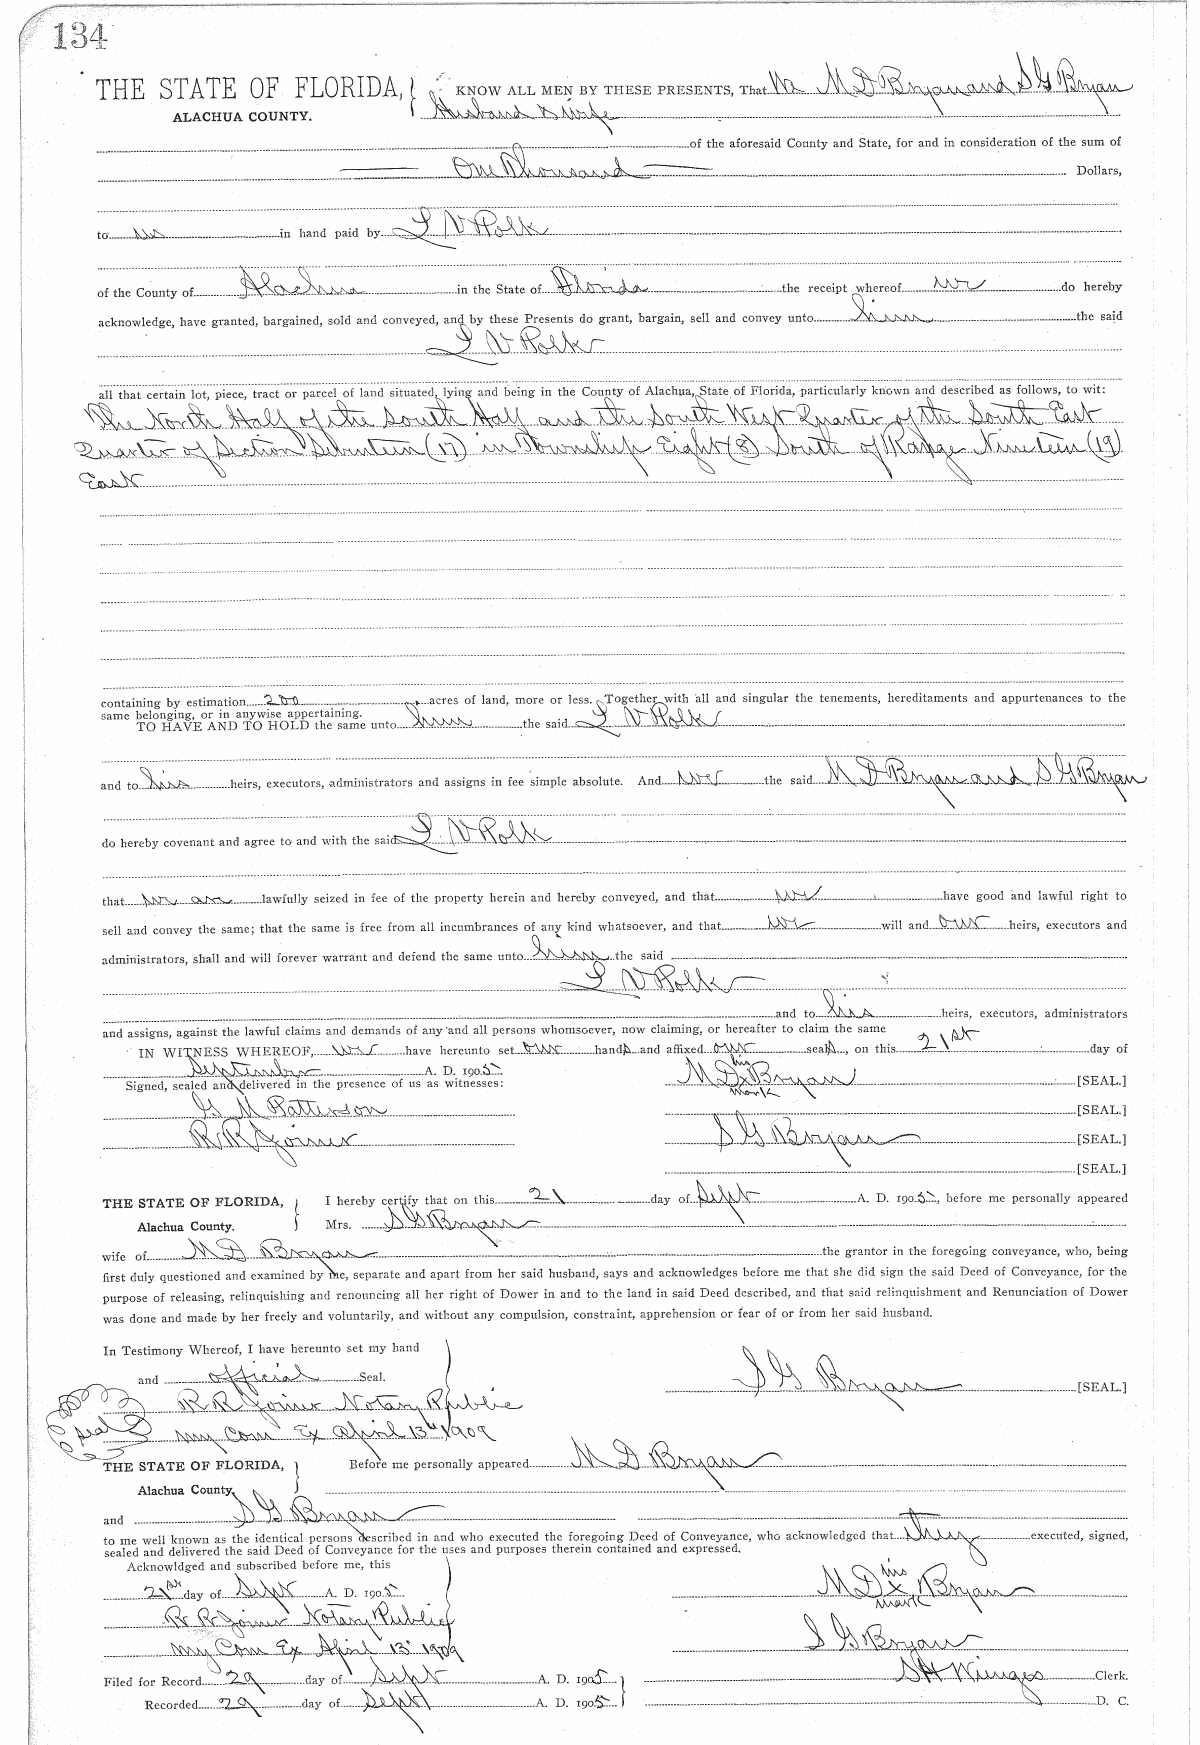 134
THE STATE OF FLORIDA, KNOW ALL MEN BY THESE PRESENTS, That We M D Bryan and S G Bryan
ALACHUA COUNTY. Husband & wife
of the aforesaid County and State, for and in consideration of the sum of
One Thousand Dollars,
to us in hand paid by L V Polk
of the County of Alachua in the State of Florida the receipt whereof we do hereby
acknowledge, have granted, bargained, sold and conveyed, and by these Presents do grant, bargain, sell and convey unto him the said
L V Polk
all that certain lot, piece, tract or parcel of land situated, lying and being in the County of Alachua, State of Florida, particularly known and described as follows, to wit:
The North Half of the South Half and the South West Quarter of the South East
Quarter of Section Seventeen (17) in Township Eight (8) South of Range Nineteen (19)
East
containing by estimation 200 acres of land, more or less. Together with all and singular the tenements, hereditaments and appurtenances to the
same belonging, or in anywise appertaining.
TO HAVE AND TO HOLD the same unto him the said L V Polk
and to his heirs, executors, administrators and assigns in fee simple absolute. And we the said M D Bryan and S G Bryan
do hereby covenant and agree to and with the said L V Polk
that we are lawfully seized in fee of the property herein and hereby conveyed, and that we have good and lawful right to
sell and convey the same; that the same is free from all incumbrances of any kind whatsoever, and that we will and our heirs, executors and
administrators, shall and will forever warrant and defend the same unto him the said
L V Polk
and to his heirs, executors, administrators
and assigns, against the lawful claims and demands of any and all persons whomsoever, now claiming, or hereafter to claim the same
IN WITNESS WHEREOF, we have hereunto set our hands and affixed our seals, on this 21st day of
September A. D. 1905 M D his x mark Bryan [SEAL.]
Signed, sealed and delivered in the presence of us as witnesses:
G M Patterson [SEAL.]
R R Joiner S G Bryan [SEAL.]
[SEAL.]
THE STATE OF FLORIDA, I hereby certify that on this 21 day of Sept A. D. 1905, before me personally appeared
Alachua County. Mrs. S G Bryan
wife of M D Bryan the grantor in the foregoing conveyance, who, being
first duly questioned and examined by me, separate and apart from her said husband, says and acknowledges before me that she did sign the said Deed of Conveyance, for the
purpose of releasing, relinquishing and renouncing all her right of Dower in and to the land in said Deed described, and that said relinquishment and Renunciation of Dower
was done and made by her freely and voluntarily, and without any compulsion, constraint, apprehension or fear of or from her said husband.
In Testimony Whereof, I have hereunto set my hand
and official Seal. S G Bryan [SEAL.]
R R Joiner Notary Public
seal My Com Ex April 13" 1909
THE STATE OF FLORIDA, Before me personally appeared M D Bryan
Alachua County.
and S G Bryan
to me well known as the identical persons described in and who executed the foregoing Deed of Conveyance, who acknowledged that they executed, signed,
sealed and delivered the said Deed of Conveyance for the uses and purposes therein contained and expressed.
Acknowldged and subscribed before me, this
21st day of Sept A. D. 1905 M D his x mark Bryan
R R Joiner Notary Public
My Com Ex April 13" 1909 S G Bryan
Filed for Record 29 day of Sept A. D. 1905 S H Wienges Clerk.
Recorded 29 day of Sept A. D. 1905 D. C.